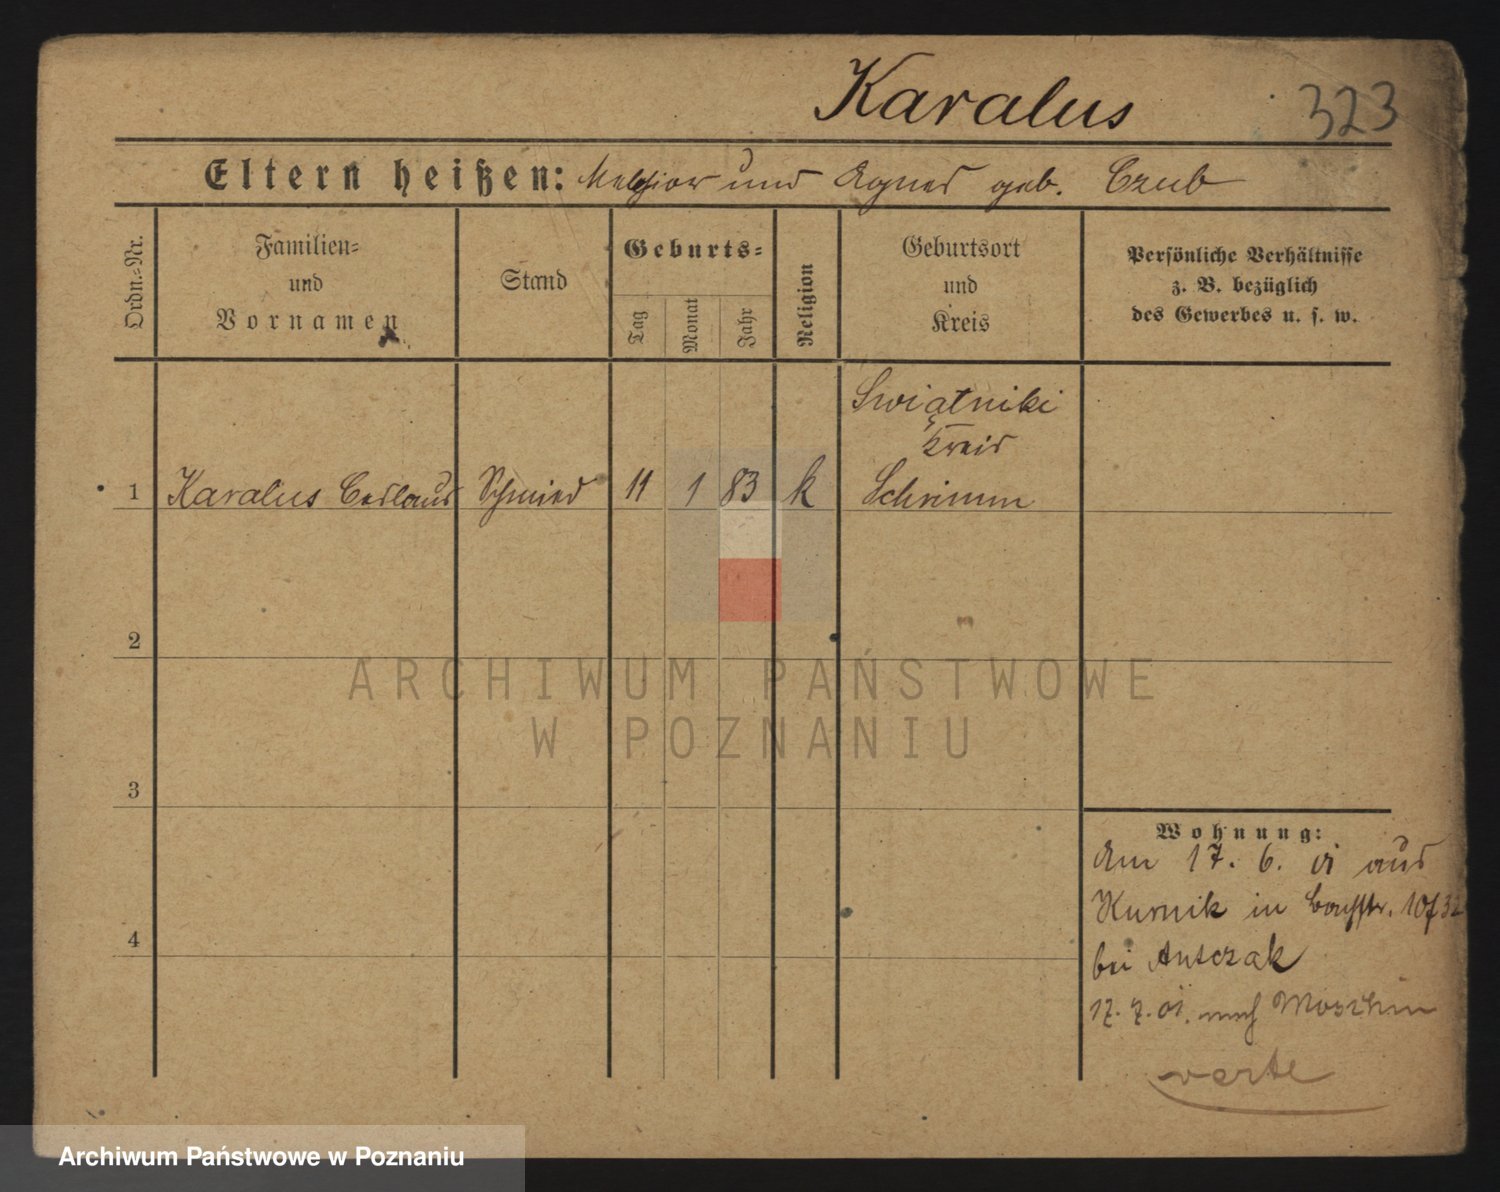 Karalus 323
Eltern heißen: Melchior und Agnes geb. Czub
Ordn.-Nr.
Familien-
und
Vornamen
Stand
Geburts-
Tag
Monat
Jahr
Religion
Geburtsort
und
Kreis
Persönliche Verhältnisse
z. B. bezüglich
des Gewerbes u. s. w.
Swiątniki
Kreis
1 Karalus Ceslaus Schmied 11 1 83 k Schrimm
2
3
4
Wohnung:
Am 17. 6. 01 aus
Kurnik in
bei Antczak
17. 7. 01. nach Moschin
verte
ARCHIWUM PAŃSTWOWE
W POZNANIU
Archiwum Państwowe w Poznaniu